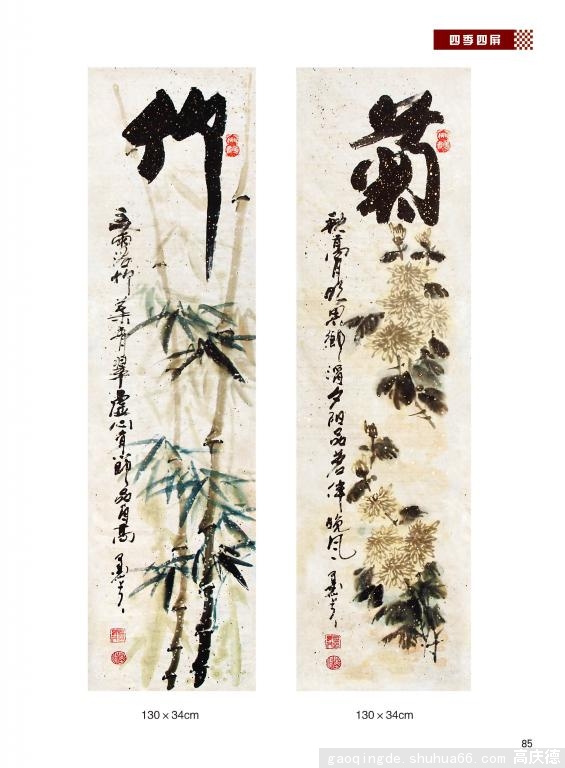 四季四屏
竹
雨浴竹葉青翠虛心有節品自高
菊
秋高月晚思鄉酒夕陽品茗伴晚風
130 x 34cm
130 x 34cm
85
gaoqingde.shuhua66.com 高庆德